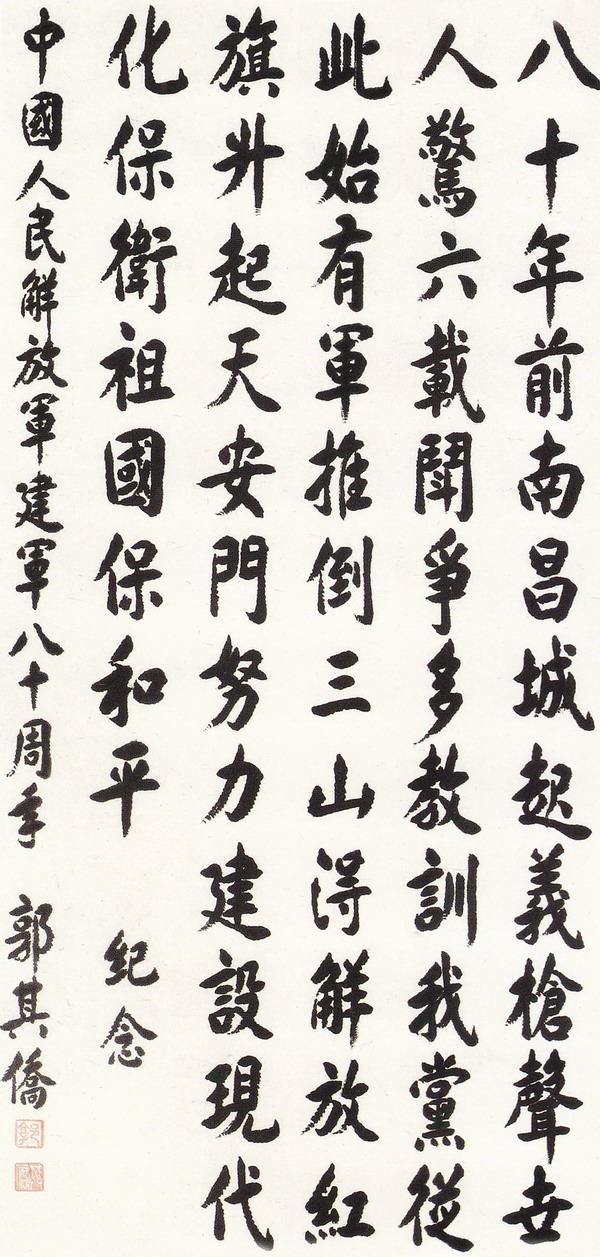 八十年前南昌城起義槍聲世
人驚六載鬪爭多教訓我黨從
此始有軍推倒三山得解放紅
旗升起天安門努力建設現代
化保衛祖國保和平
紀念
中國人民解放軍建軍八十周年 郭其僑